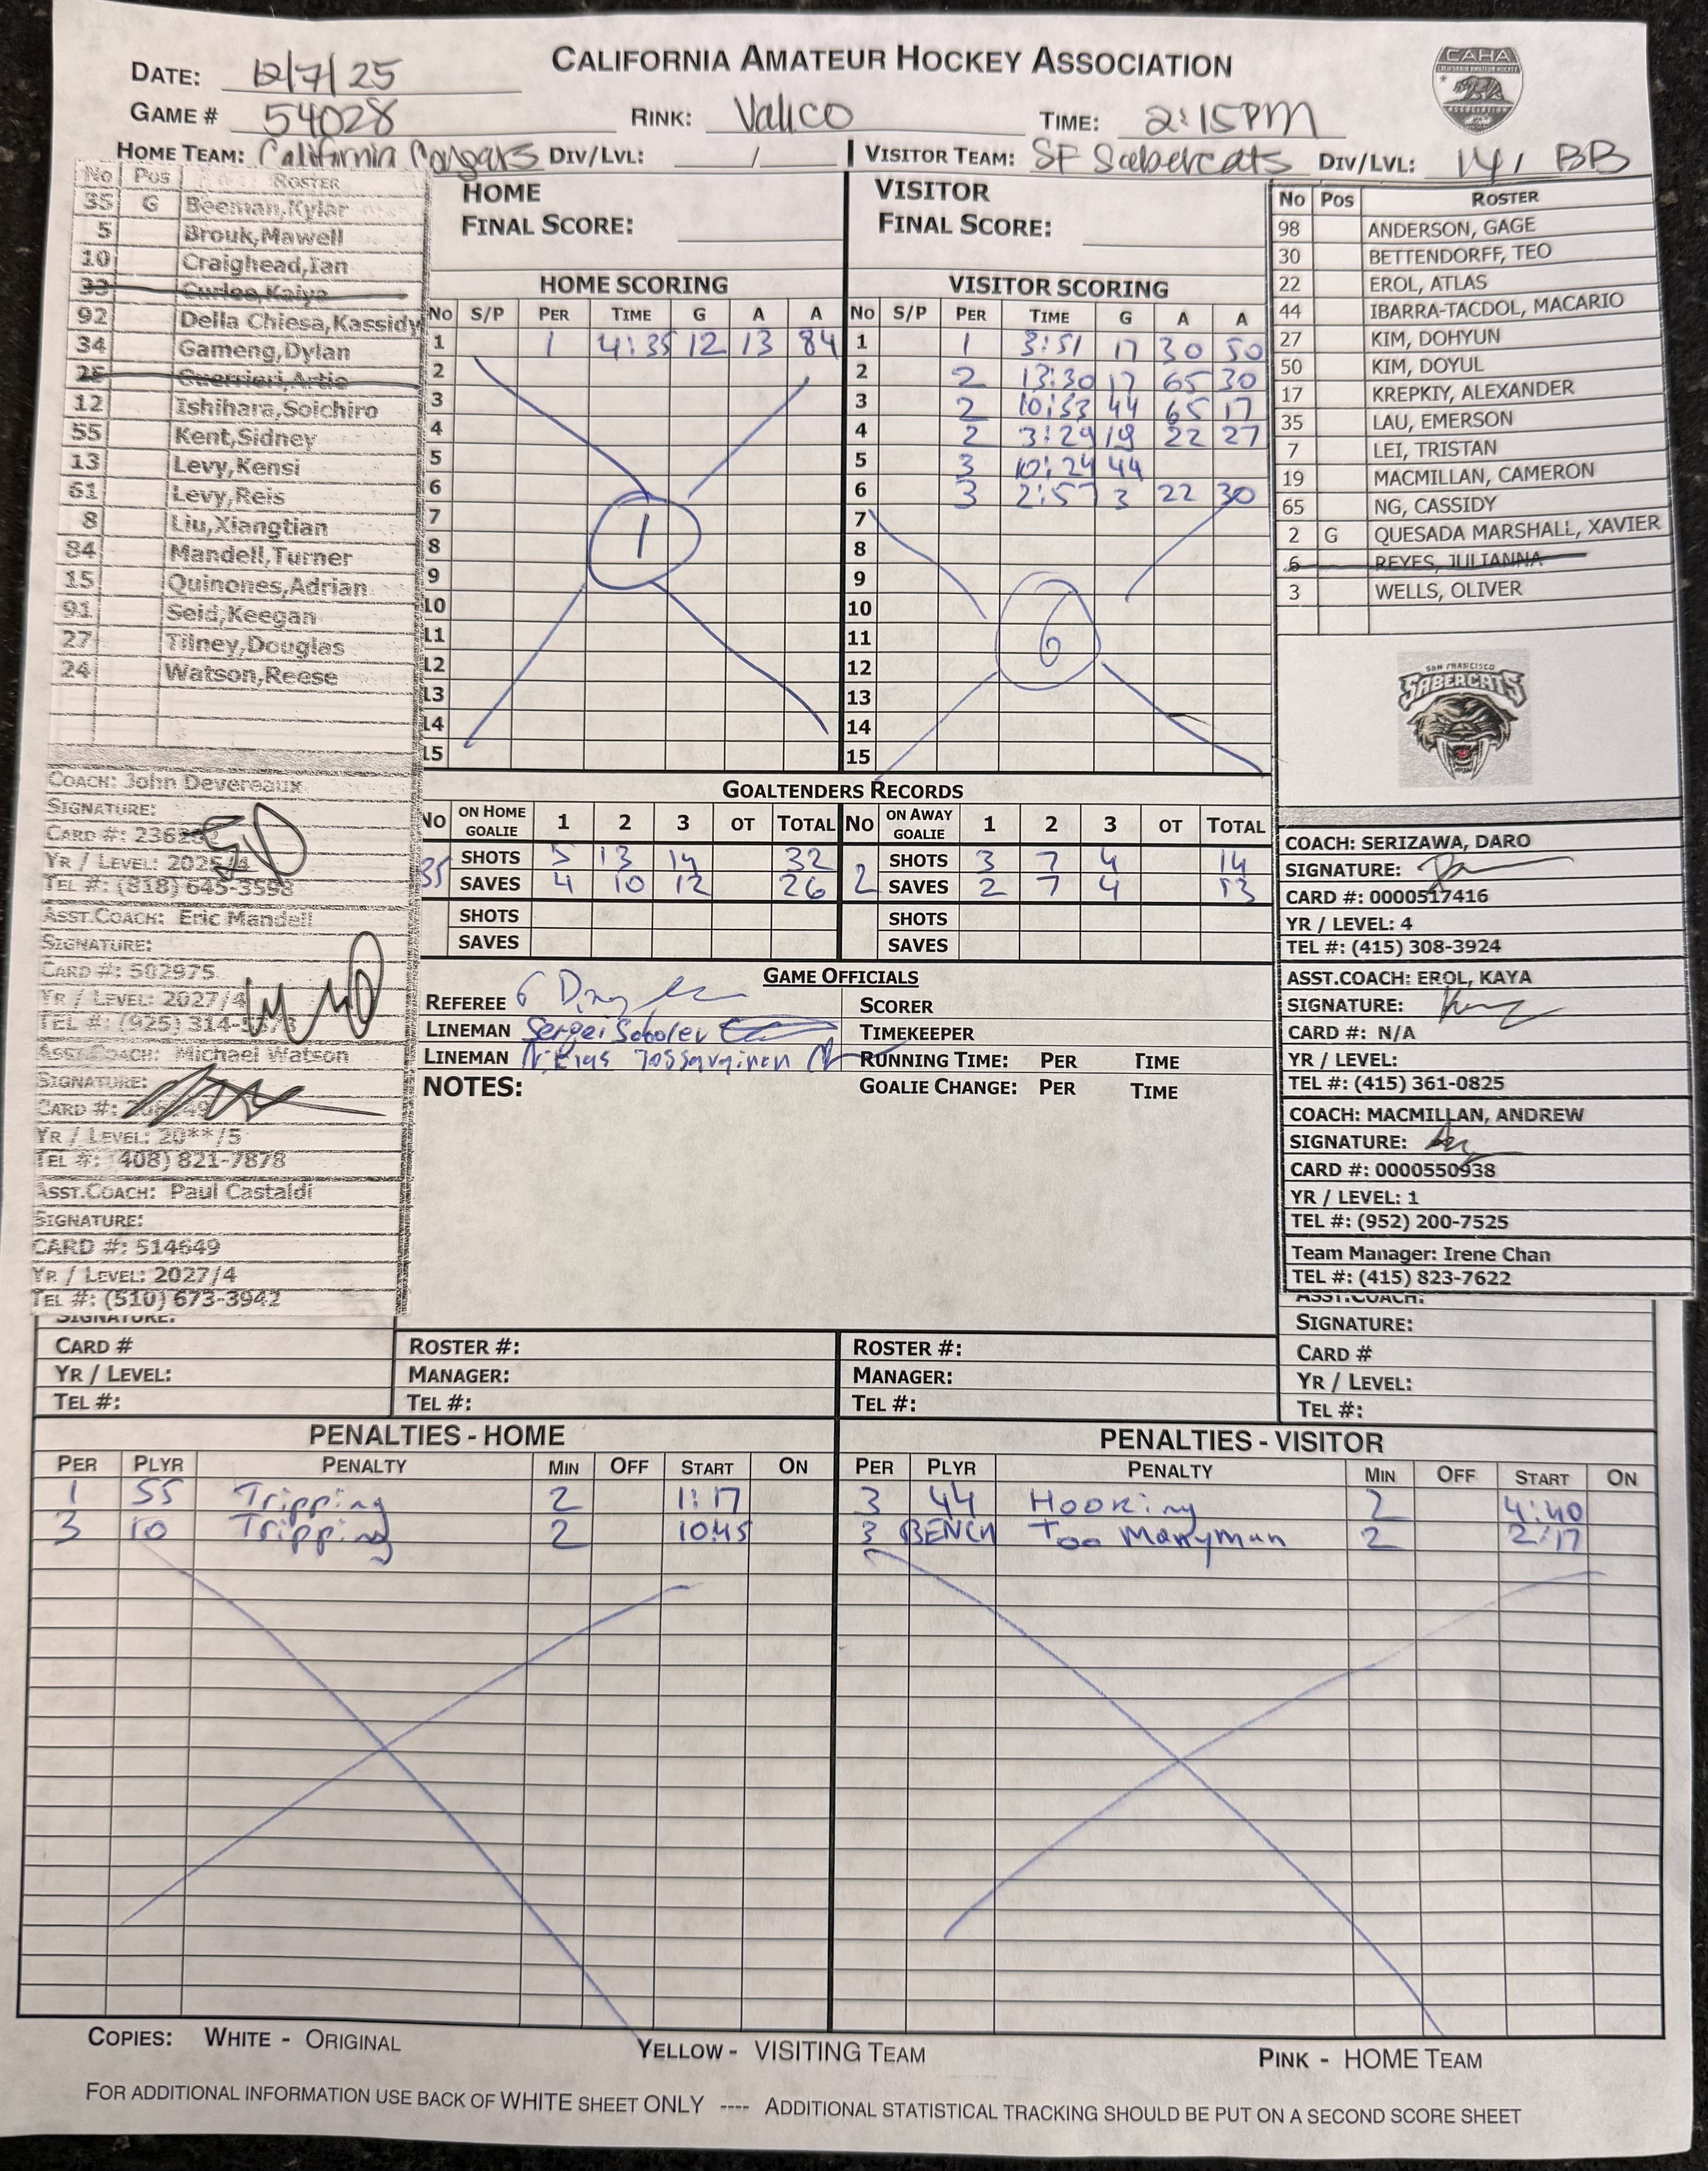 CALIFORNIA AMATEUR HOCKEY ASSOCIATION
CAHA
DATE: 12/7/25
GAME # 54028 RINK: Vallco TIME: 2:15PM
HOME TEAM: California Cougars DIV/LVL: / VISITOR TEAM: SF Sabercats DIV/LVL: 14 / BB
No Pos ROSTER
35 G Beeman,Kylar
5 Brouk,Mawell
10 Craighead,Ian
33 Curlee,Kaiya
92 Della Chiesa,Kassidy
34 Gameng,Dylan
25 Guerrieri,Artie
12 Ishihara,Soichiro
55 Kent,Sidney
13 Levy,Kensi
61 Levy,Reis
8 Liu,Xiangtian
84 Mandell,Turner
15 Quinones,Adrian
91 Seid,Keegan
27 Tilney,Douglas
24 Watson,Reese
COACH: John Devereaux
SIGNATURE:
CARD #:
YR / LEVEL: 2025/4
TEL #: (818) 645-3598
ASST.COACH: Eric Mandell
SIGNATURE:
CARD #: 502975
YR / LEVEL: 2027/4
TEL #: (925)
ASST.COACH: Michael Watson
SIGNATURE:
CARD #:
YR / LEVEL: 20**/5
TEL #: (408) 821-7878
ASST.COACH: Paul Castaldi
SIGNATURE:
CARD #: 514649
YR / LEVEL: 2027/4
TEL #: (510) 673-3942
SIGNATURE:
CARD #
YR / LEVEL:
TEL #:
HOME
FINAL SCORE:
HOME SCORING
No S/P PER TIME G A A
1 1 4:35 12 13 84
2
3
4
5
6
7
8
9
10
11
12
13
14
15
1
VISITOR
FINAL SCORE:
VISITOR SCORING
No S/P PER TIME G A A
1 1 3:51 17 30 50
2 2 13:30 17 65 30
3 2 10:53 44 65 17
4 2 3:29 19 22 27
5 3 10:24 44
6 3 2:57 3 22 30
7
8
9
10
11
12
13
14
15
6
GOALTENDERS RECORDS
No ON HOME GOALIE 1 2 3 OT TOTAL No ON AWAY GOALIE 1 2 3 OT TOTAL
35 SHOTS 5 13 14 32 2 SHOTS 3 7 4 14
SAVES 4 10 12 26 SAVES 2 7 4 13
SHOTS SHOTS
SAVES SAVES
GAME OFFICIALS
REFEREE SCORER
LINEMAN Sergei Sobolev TIMEKEEPER
LINEMAN RUNNING TIME: PER TIME
NOTES: GOALIE CHANGE: PER TIME
ROSTER #: ROSTER #:
MANAGER: MANAGER:
TEL #: TEL #:
No Pos ROSTER
98 ANDERSON, GAGE
30 BETTENDORFF, TEO
22 EROL, ATLAS
44 IBARRA-TACDOL, MACARIO
27 KIM, DOHYUN
50 KIM, DOYUL
17 KREPKIY, ALEXANDER
35 LAU, EMERSON
7 LEI, TRISTAN
19 MACMILLAN, CAMERON
65 NG, CASSIDY
2 G QUESADA MARSHALL, XAVIER
6 REYES, JULIANNA
3 WELLS, OLIVER
SAN FRANCISCO
SABERCATS
COACH: SERIZAWA, DARO
SIGNATURE:
CARD #: 0000517416
YR / LEVEL: 4
TEL #: (415) 308-3924
ASST.COACH: EROL, KAYA
SIGNATURE:
CARD #: N/A
YR / LEVEL:
TEL #: (415) 361-0825
COACH: MACMILLAN, ANDREW
SIGNATURE:
CARD #: 0000550938
YR / LEVEL: 1
TEL #: (952) 200-7525
Team Manager: Irene Chan
TEL #: (415) 823-7622
ASST.COACH:
SIGNATURE:
CARD #
YR / LEVEL:
TEL #:
PENALTIES - HOME
PER PLYR PENALTY MIN OFF START ON
1 55 Tripping 2 1:17
3 10 Tripping 2 10:45
PENALTIES - VISITOR
PER PLYR PENALTY MIN OFF START ON
3 44 Hooking 2 4:40
3 BENCH Too Manyman 2 2:17
COPIES: WHITE - ORIGINAL YELLOW - VISITING TEAM PINK - HOME TEAM
FOR ADDITIONAL INFORMATION USE BACK OF WHITE SHEET ONLY ---- ADDITIONAL STATISTICAL TRACKING SHOULD BE PUT ON A SECOND SCORE SHEET